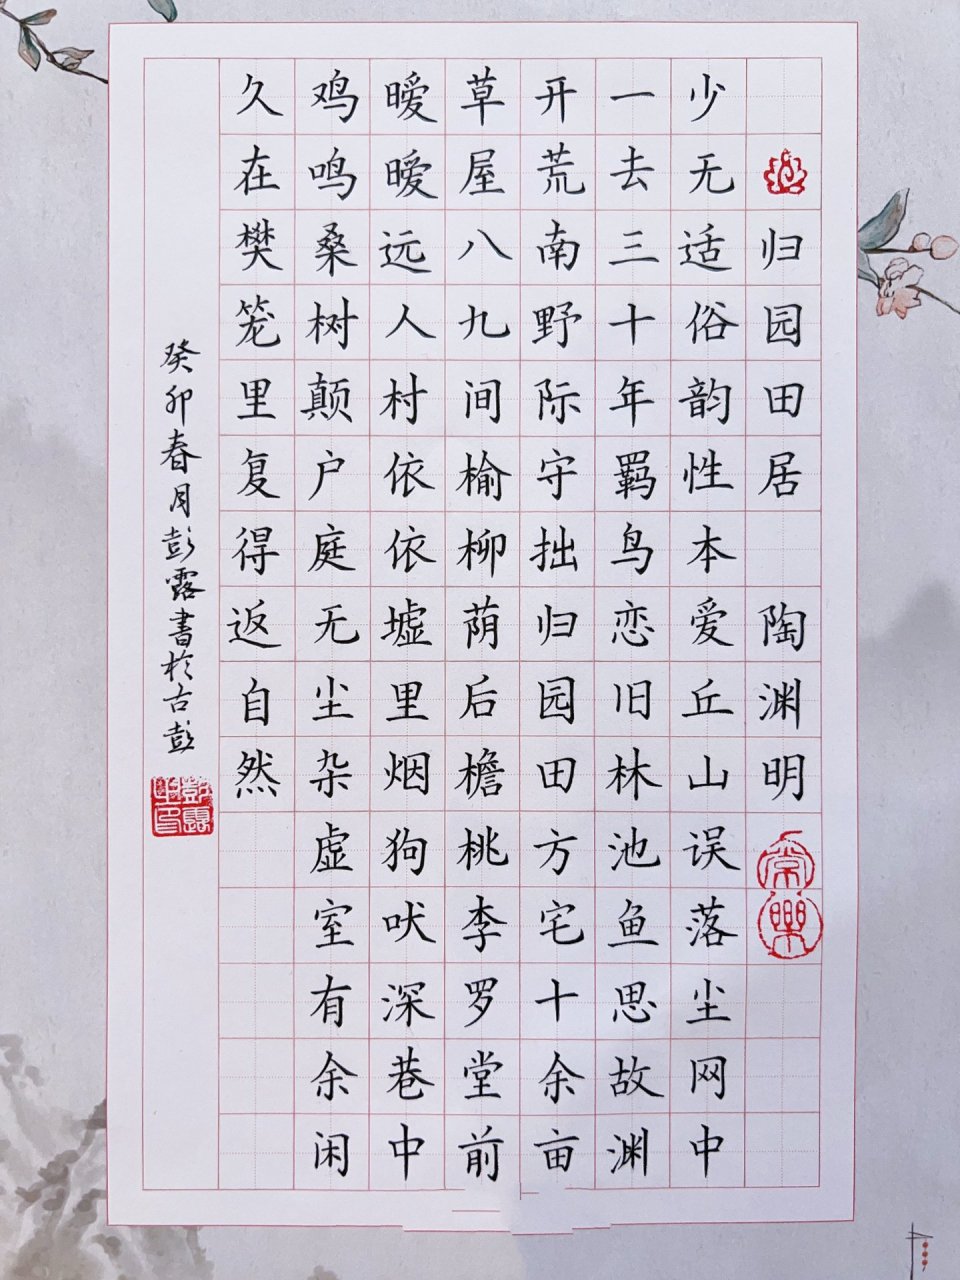 归园田居 陶渊明
常樂
少无适俗韵性本爱丘山误落尘网中
一去三十年羁鸟恋旧林池鱼思故渊
开荒南野际守拙归园田方宅十余亩
草屋八九间榆柳荫后檐桃李罗堂前
暧暧远人村依依墟里烟狗吠深巷中
鸡鸣桑树颠户庭无尘杂虚室有余闲
久在樊笼里复得返自然
癸卯春月彭露書於古彭
彭露